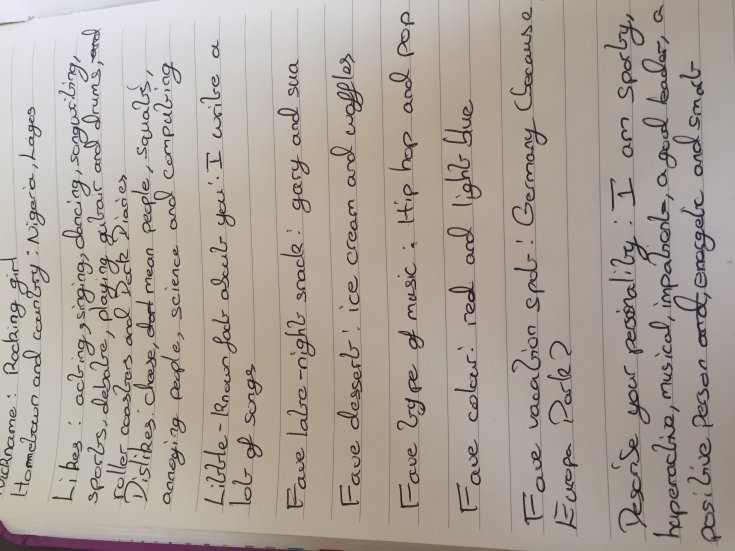 Nickname: Rocking girl
Hometown and country: Nigeria, Lagos
Likes: acting, singing, dancing, songwriting,
sports, debate, playing guitar and drums, and
roller coasters and Dork Diaries
Dislikes: cheese, mean people, squats,
annoying people, science and computing
Little-known fact about you: I write a
lot of songs
Fave late-night snack: gary and sua
Fave dessert: ice cream and waffles
Fave type of music: Hip hop and pop
Fave color: red and light blue
Fave vacation spot: Germany (because
Europa Park?
Describe your personality: I am sporty,
hyperactive, musical, impatient, a good leader, a
positive person and, energetic and smart